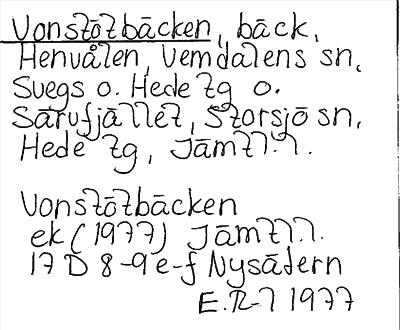 Vonstötbäcken, bäck,
Henvålen, Vemdalens sn,
Svegs o. Hede tg o.
Särvfjället, Storsjö sn,
Hede tg, Jämtl. l.
Vonstötbäcken
ek (1977) Jämtl. l.
17 D 8-9 e-f Nysätern
E.R-l 1977